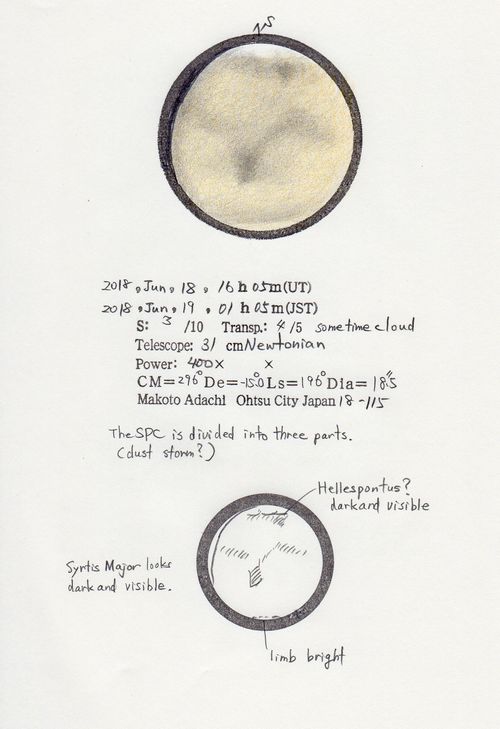 S
2018, Jun, 18, 16 h 05 m (UT)
2018, Jun, 19, 01 h 05 m (JST)
S: 3 /10 Transp.: 4 /5 sometime cloud
Telescope: 31 cm Newtonian
Power: 400 × ×
CM=296° De=-15.0° Ls=196° Dia= 18."5
Makoto Adachi Ohtsu City Japan 18-115
The SPC is divided into three parts.
(dust storm?)
Hellespontus?
dark and visible
Syrtis Major looks
dark and visible.
limb bright